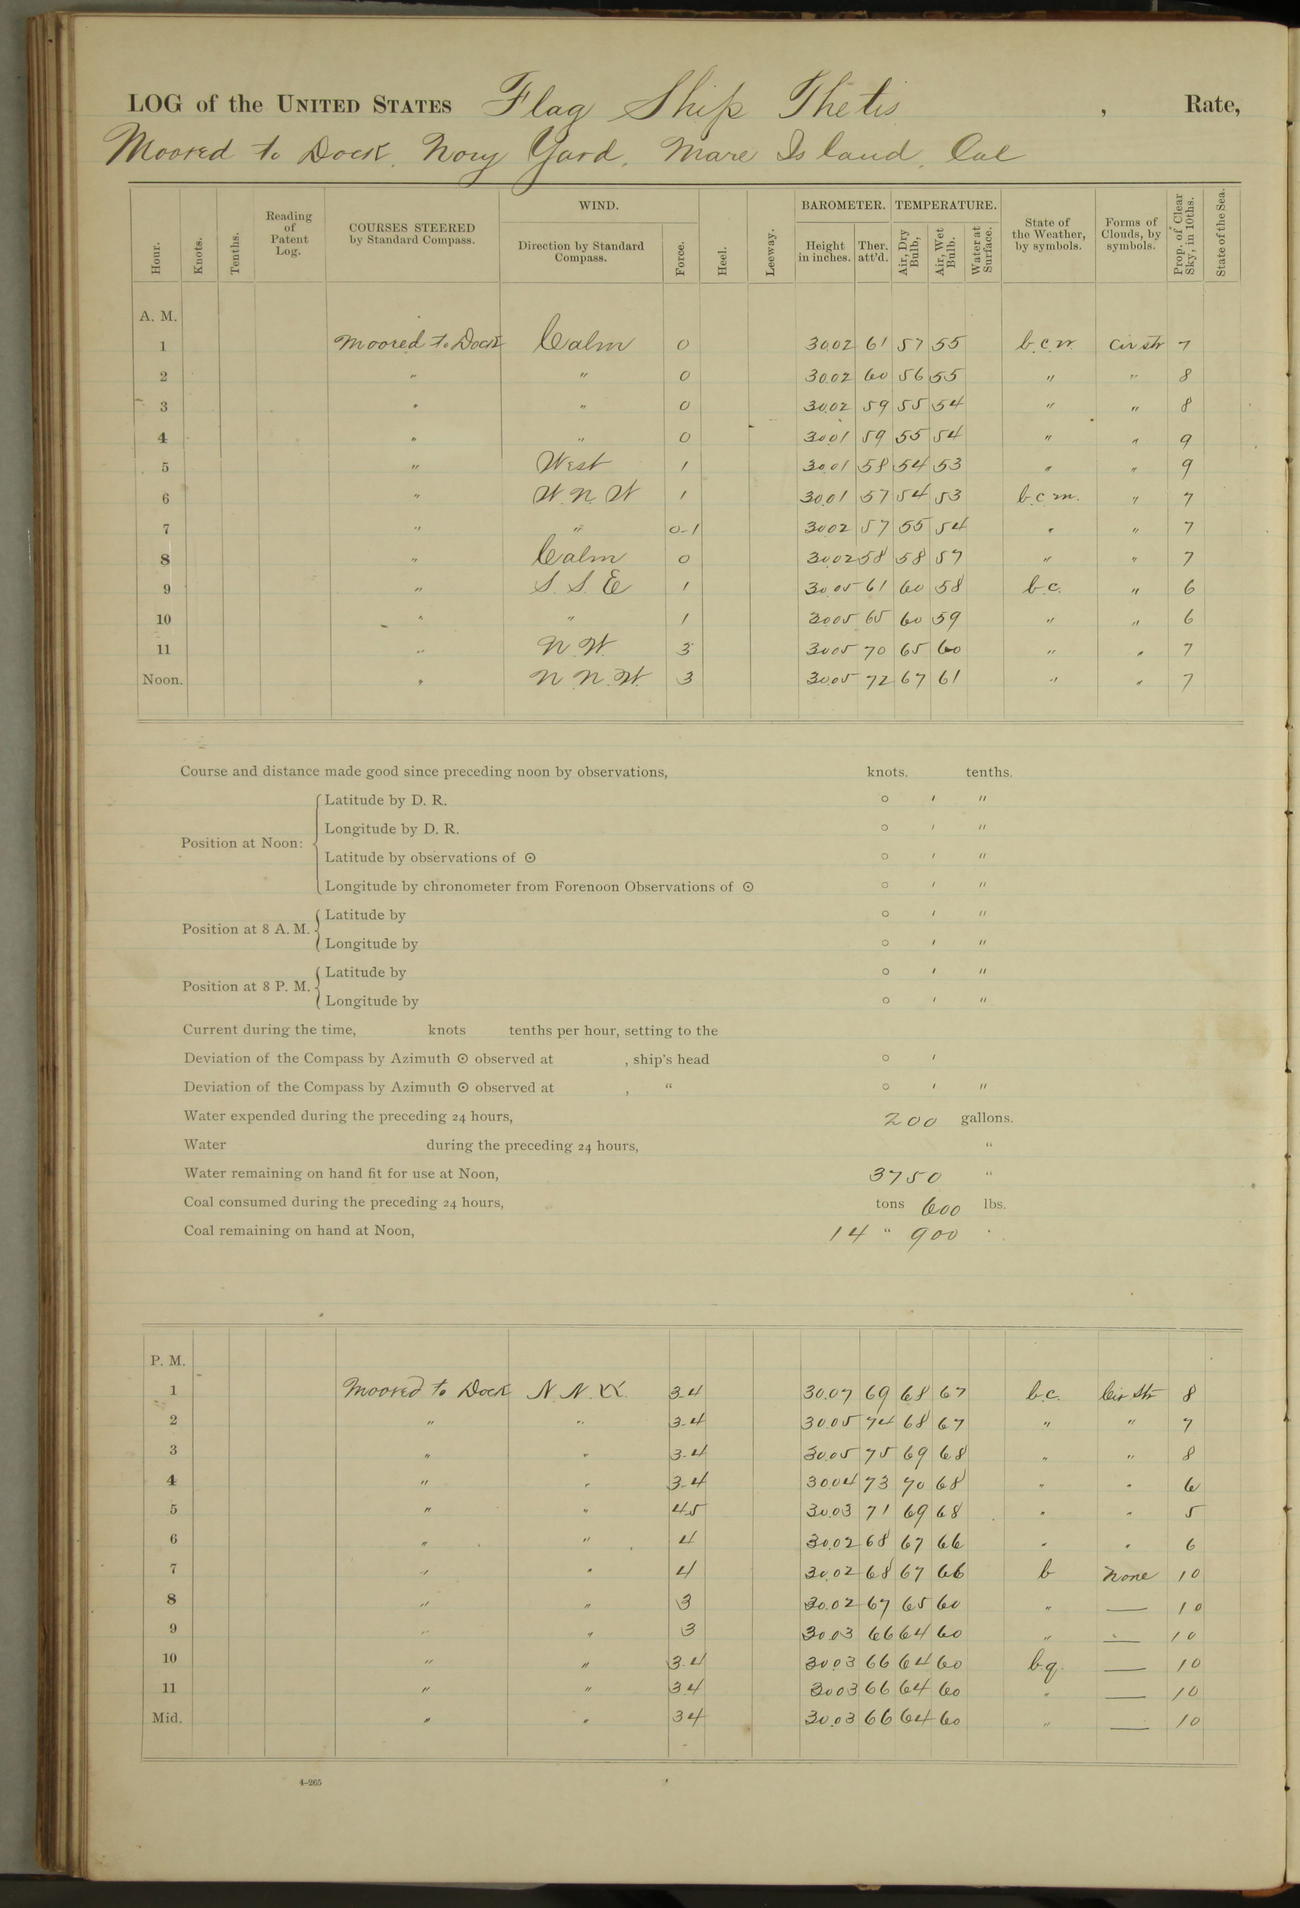 LOG of the UNITED STATES Flag Ship Thetis , Rate,
Moored to Dock, Navy Yard, Mare Island, Cal
Hour. Knots. Tenths. Reading of Patent Log. COURSES STEERED by Standard Compass. WIND. Direction by Standard Compass. Force. Heel. Leeway. BAROMETER. Height in inches. Ther. att'd. TEMPERATURE. Air, Dry Bulb, Air, Wet Bulb. Water at Surface. State of the Weather, by symbols. Forms of Clouds, by symbols. Prop. of Clear Sky, in 10ths. State of the Sea.
A. M.
1 Moored to Dock Calm 0 30.02 61 57 55 b.c.m. Cir str 7
2 " " 0 30.02 60 56 55 " " 8
3 " " 0 30.02 59 55 54 " " 8
4 " " 0 30.01 59 55 54 " " 9
5 " West 1 30.01 58 54 53 " " 9
6 " W.N.W 1 30.01 57 54 53 b.c.m. " 7
7 " " 0-1 30.02 57 55 54 " " 7
8 " Calm 0 30.02 58 58 57 " " 7
9 " S.S.E 1 30.05 61 60 58 b.c. " 6
10 " " 1 30.05 65 60 59 " " 6
11 " N.W. 3 30.05 70 65 60 " " 7
Noon. " N.N.W. 3 30.05 72 67 61 " " 7
Course and distance made good since preceding noon by observations, knots. tenths.
Position at Noon:
Latitude by D. R. ° ′ ″
Longitude by D. R. ° ′ ″
Latitude by observations of ☉ ° ′ ″
Longitude by chronometer from Forenoon Observations of ☉ ° ′ ″
Position at 8 A. M.
Latitude by ° ′ ″
Longitude by ° ′ ″
Position at 8 P. M.
Latitude by ° ′ ″
Longitude by ° ′ ″
Current during the time, knots tenths per hour, setting to the
Deviation of the Compass by Azimuth ☉ observed at , ship's head ° ′
Deviation of the Compass by Azimuth ☉ observed at , " ° ′ ″
Water expended during the preceding 24 hours, 200 gallons.
Water during the preceding 24 hours, "
Water remaining on hand fit for use at Noon, 3750 "
Coal consumed during the preceding 24 hours, tons 600 lbs.
Coal remaining on hand at Noon, 14 " 900 "
P. M.
1 Moored to Dock N.N.W. 3-4 30.07 69 68 67 b.c. Cir Str 8
2 " " 3-4 30.05 74 68 67 " " 7
3 " " 3-4 30.05 75 69 68 " " 8
4 " " 3-4 30.04 73 70 68 " " 6
5 " " 4-5 30.03 71 69 68 " " 5
6 " " 4 30.02 68 67 66 " " 6
7 " " 4 30.02 68 67 66 b None 10
8 " " 3 30.02 67 65 60 " — 10
9 " " 3 30.03 66 64 60 " — 10
10 " " 3-4 30.03 66 64 60 b.q. — 10
11 " " 3-4 30.03 66 64 60 " — 10
Mid. " " 3-4 30.03 66 64 60 " — 10
4—265